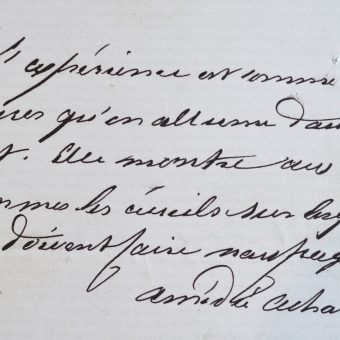 L'expérience est comme
qu'on allume dans
t. Elle montre au
mmes les écueils sur les
doivent faire naufrag
Amédée Acha